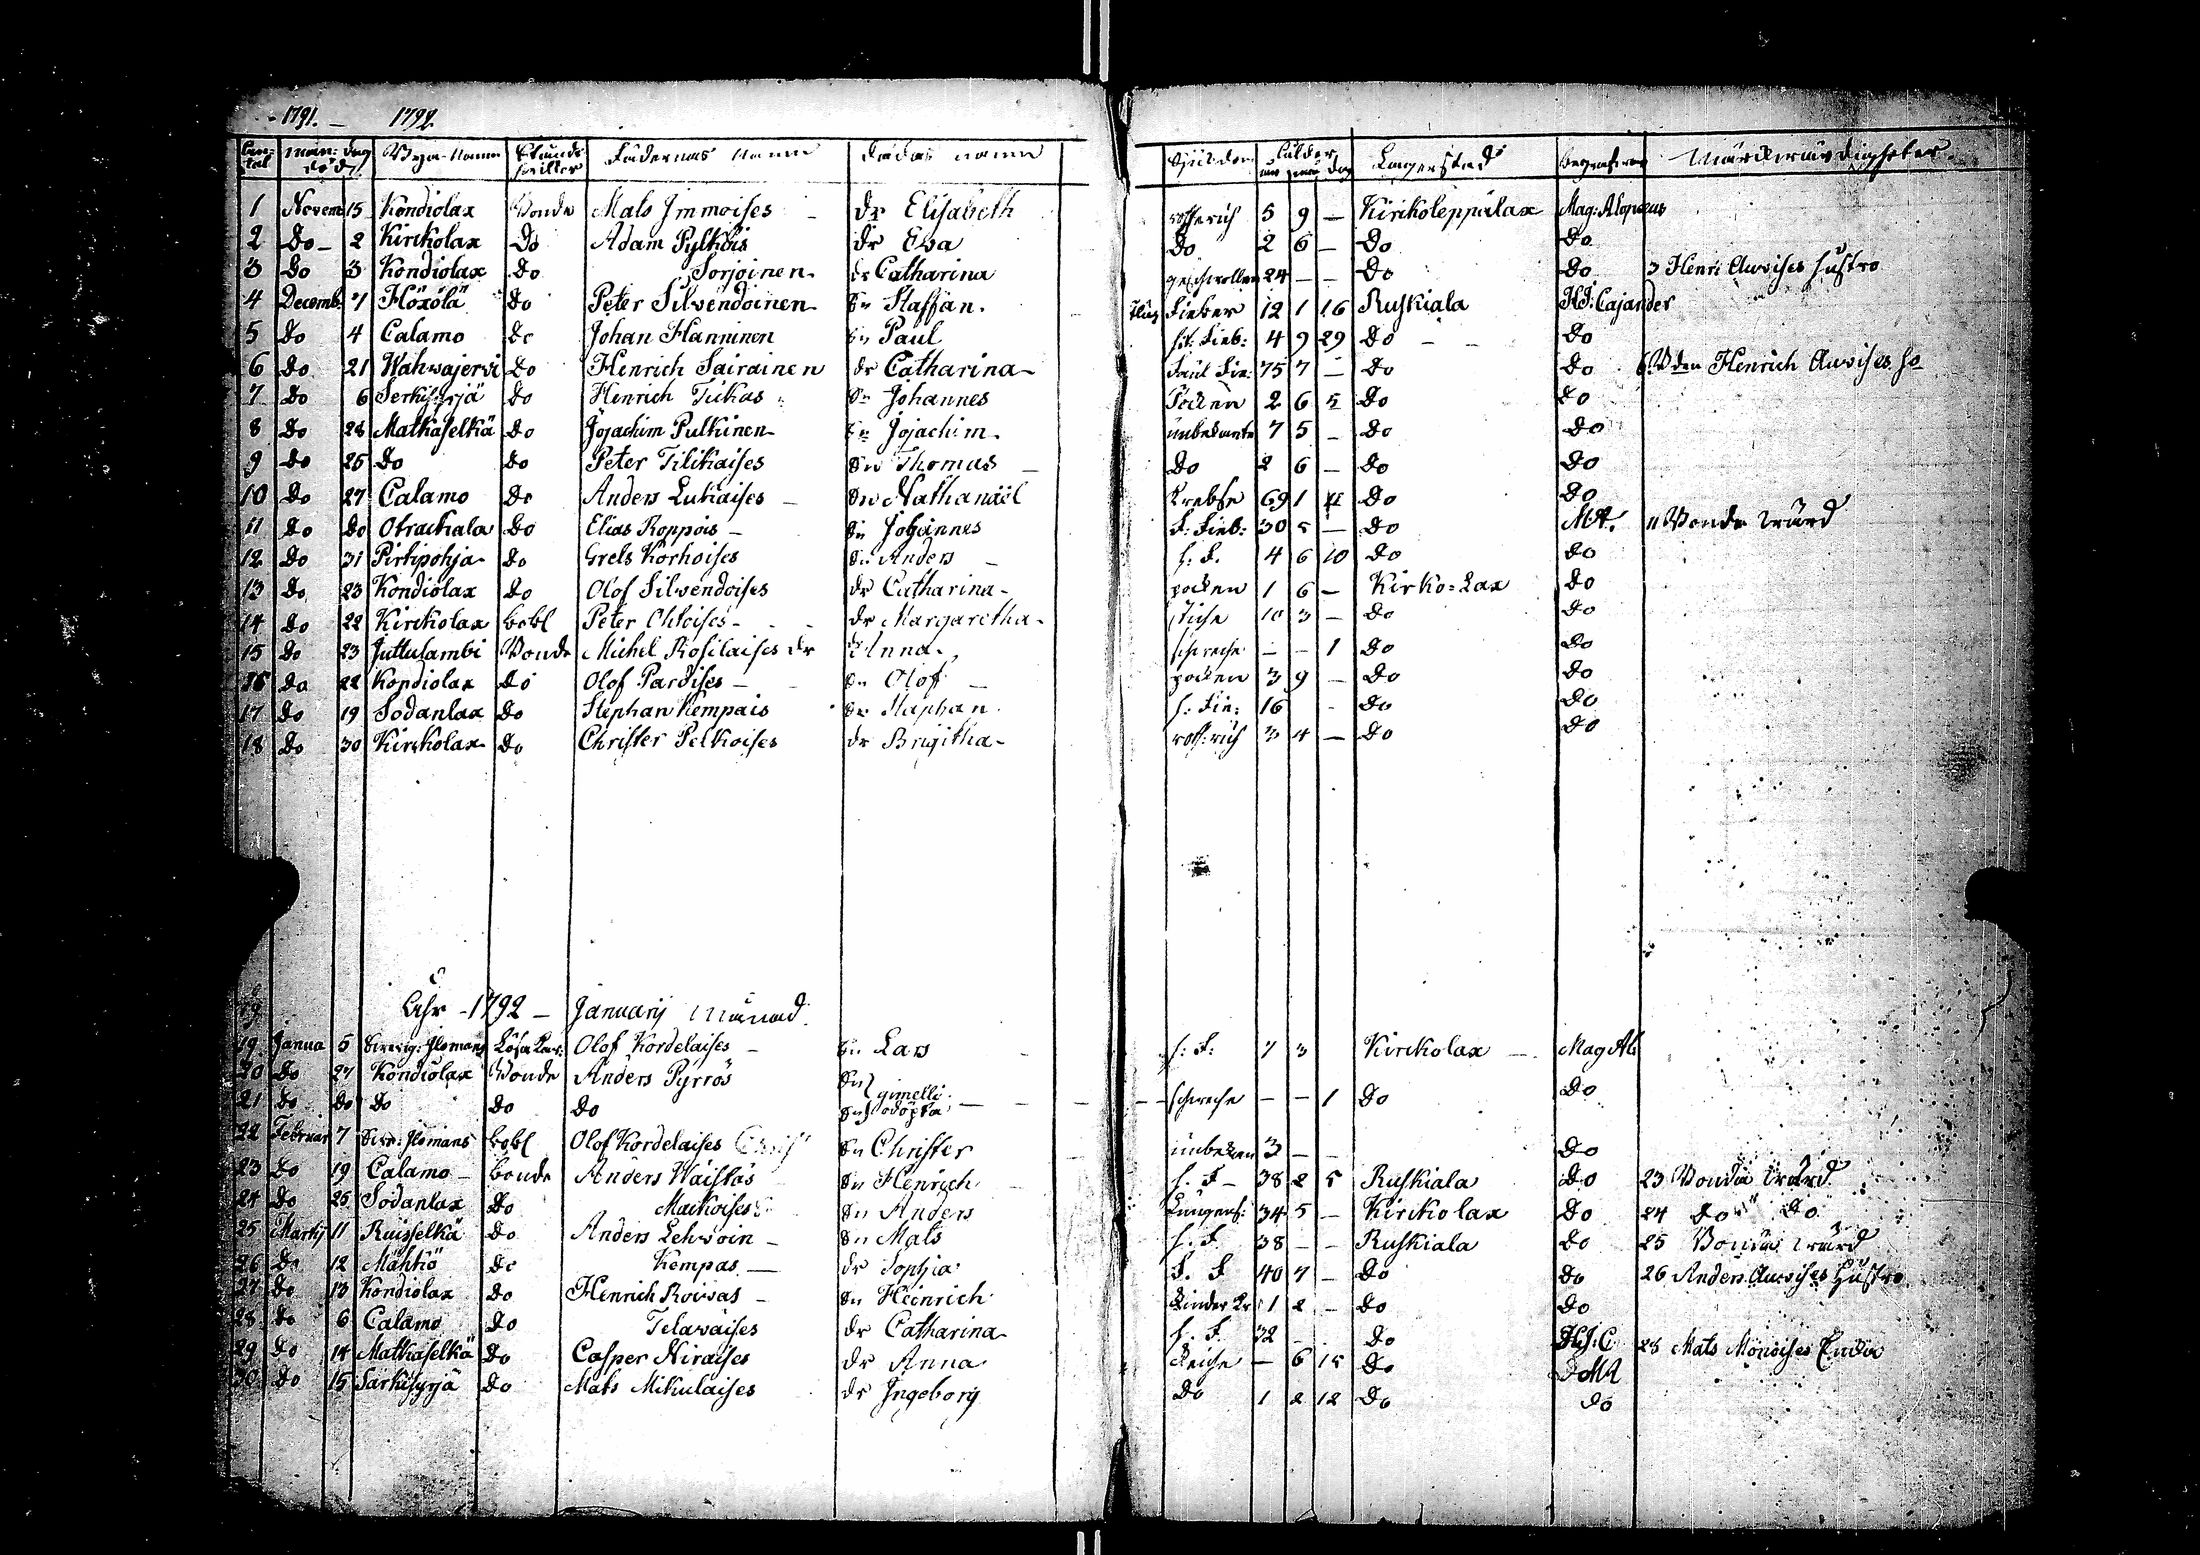 1791. — 1792.
man: dag död Bya-Namn Stånds Fädernas Namn dödas namn Sjukdom ålder dag Lägerstad begrafvare Märckwärdigheter
1 Novem 15 Kondiolax Bonde Mats Immoises — dr Elisabeth 5 9 — Kirikoleppälax Mag: Alopæus
2 Do — 2 Kirikolax Do Adam Pylköis dr Eva Do 2 6 — Do Do
3 Do 3 Kondiolax Do Sorjoinen dr Catharina geschwollen 24 — — Do Do 3 Henri Auvises hustro
4 Decemb. 7 Höxölä Do Peter Silvendoinen Sn Staffan. Fieber 12 1 16 Ruskiala HJ: Cajander
5 Do 4 Calamo Do Johan Hanninen Sn Paul hit: Fieb: 4 9 29 Do — — Do
6 Do 21 Wahwajerwi Do Henrich Sairainen dr Catharina — Faul Fie: 75 7 — Do Do 6 Henrich Auvises
7 Do 6 Serkisyrjä Do Henrich Tiikas Sn Johannes Pocken 2 6 5 Do Do
8 Do 28 Matkaselkä Do Jojachim Pulkinen Sn Jojachim. unbekante 7 5 — Do Do
9 Do 25 Do Do Peter Tilikaises Sn Thomas — Do 2 6 — Do Do
10 Do 27 Calamo Do Anders Lukaises — Sn Nathanaël Krebse 69 1 Do Do
11 Do Do Otrackala Do Elias Roppois — Sn Johannes F: Fieb: 30 5 — Do MA. 11 Bonde wärd
12 Do 31 Pirtipohja Do Grels Korhoises Sn Anders — h. F. 4 6 10 Do Do
13 Do 23 Kondiolax Do Olof Silvendoises dr Catharina — pocken 1 6 — Kirko=Lax Do
14 Do 22 Kirikolax Bobl Peter Oktoises — dr Margaretha — stiche 10 3 — Do Do
15 Do 23 Juttulambi Bonde Michel Kosilaises dr Anna. — — 1 Do Do
16 Do 22 Kondiolax Do Olof Pardises — Sn Olof — pocken 3 9 — Do Do
17 Do 19 Sodanlax Do Stephan Kempais Sn Staphan. h: Fie: 16 — Do Do
18 Do 30 Kirikolax Do Christer Pelkoises dr Brigitha — 3 4 — Do Do
Åhr — 1792 — Januarij Månad.
19 Janua 5 Ilomants Olof Kordelaises — Sn Lars h: F: 7 3 Kirikolax — Mag Al
20 Do 27 Kondiolax Bonde Anders Pyrrös Sn gimelli
21 Do Do Do Do Do Sn odöpta — — 1 Do Do
22 Februar 7 Ilomants Bobl Olof Kordelaises Sn Christer unbekan 3 — — Do
23 Do 19 Calamo — Bonde Anders Waistäs Sn Henrich h. F — 38 2 5 Ruskiala Do 23 Bonda wärd
24 Do 25 Sodanlax Do Maikoises Sn Anders Lungens: 34 5 — Kirikolax Do 24 do do
25 Martij 11 Ruisselkä Do Anders Lehvoin — Sn Mats h. F 38 — — Ruskiala Do 25 Bonda wärd
26 Do 12 Mähkö Do Kempas — dr Sophia F. F 40 7 — Do Do 26 Anders Auvises Hustro
27 Do 13 Kondiolax Do Henrich Roivas — Sn Heinrich Kinder Kr 1 2 — Do Do
28 Do 6 Calamo Do Telavaises dr Catharina h. F. 32 — Do HJ: C 28 Mats Monoises Enka
29 Do 14 Matkaselkä Do Casper Hiraises dr Anna — 6 15 Do Do MA
30 Do 15 Särkisyrjä Do Mats Mikulaises dr Ingeborg Do 1 2 12 Do Do